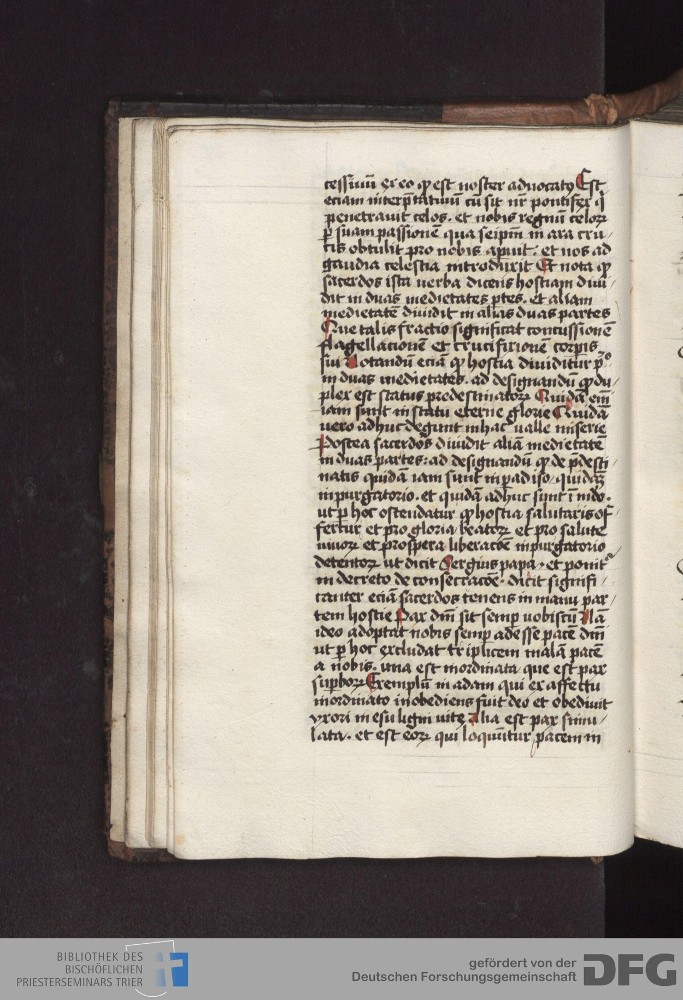 cessiuũ ex eo qp est noster aduocatꝯ Est
eciam interp̃tatiuũ cũ sit nr̃ pontifex q̇
penetrauit celos. et nobis regnũ celoꝝ
ꝑ suam passionẽ qua seipm̃ in ara cru⸗
cis obtulit pro nobis apuit. et nos ad
gaudia celestia introduxit Et nota qp
sacerdos ista uerba dicens hostiam diui⸗
dit in duas medietates ptes. et aliam
medietatẽ diuidit in alias duas partes
Que talis fractio significat concussionẽ
flagellacionẽ et crucifixionẽ corpis
sui Notandũ eciã qp hostia diuiditur pº
in duas medietates. ad designandũ qp du⸗
plex est status predestinatoꝝ Quidã em̃
iam sunt in statu eterne glorie Quidã
uero adhuc degunt in hac ualle miserie
Postea sacerdos diuidit aliã medietatẽ
in duas partes: ad designandũ qp de p̃desti⸗
natis quidã iam sunt in padiso. quidaȝ
in purgatorio. et quidã adhuc sunt ĩ mõo.
ut ꝑ hoc ostendatur qp hostia salutaris of⸗
fertur et pro gloria beatoꝝ et pro salute
uiuoꝝ et prospera liberacõe in purgatorio
detentoꝝ ut dicit Sergius papa. et ponitº
in decreto de consecracõe. dicit signifi⸗
canter eciã sacerdos tenens in manu par⸗
tem hostie Pax dñi sit semp uobiscũ Nã
ideo adoptat nobis semp adesse pacẽ dñi
ut ꝑ hoc excludat triplicem malã pacẽ
a nobis. una est inordinata que est pax
supboꝝ Exemplũ in adam qui ex affectu
inordinato inobediens fuit deo et obediuit
vxori in esu ligni uite Alia est pax simu⸗
lata. et est eoꝝ qui loquũtur pacem in
BIBLIOTHEK DES
BISCHÖFLICHEN
PRIESTERSEMINARS TRIER
gefördert von der
Deutschen Forschungsgemeinschaft
DFG